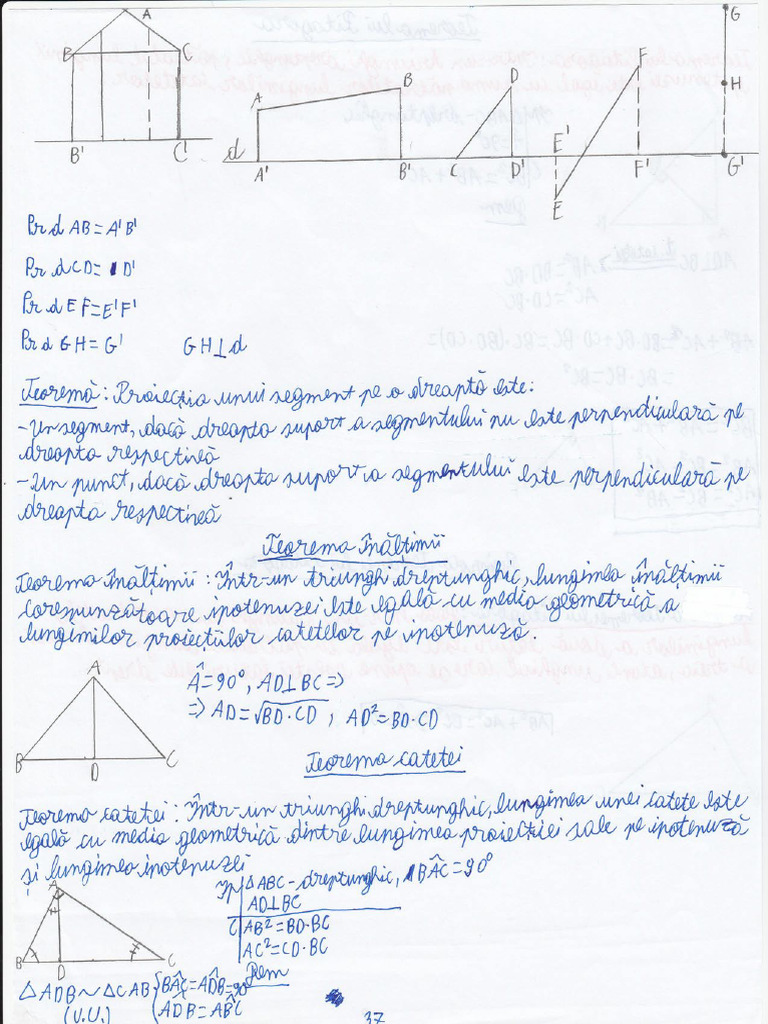 A
B
C
B'
C'
d
A
B
A'
B'
C
D
D'
E'
E
F
F'
G
H
G'
Pr d AB = A'B'
Pr d CD = D'
Pr d EF = E'F'
Pr d GH = G' GH⊥d
Teoremă: Proiecția unui segment pe o dreaptă este:
-Un segment, dacă dreapta suport a segmentului nu este perpendiculară pe
dreapta respectivă
-Un punct, dacă dreapta suport a segmentului este perpendiculară pe
dreapta respectivă
Teorema Înălțimii
Teorema Înălțimii: Într-un triunghi dreptunghic, lungimea înălțimii
corespunzătoare ipotenuzei este egală cu media geometrică a
lungimilor proiecțiilor catetelor pe ipotenuză.
A
B
D
C
Â=90°, AD⊥BC =>
=> AD = √BD·CD , AD²=BD·CD
Teorema catetei
Teorema catetei: Într-un triunghi dreptunghic, lungimea unei catete este
egală cu media geometrică dintre lungimea proiecției sale pe ipotenuză
și lungimea ipotenuzei
A
B
D
C
Ip ΔABC - dreptunghic, BÂC=90°
AD⊥BC
C AB²=BD·BC
AC²=CD·BC
Dem
ΔADB ~ ΔCAB { BÂC=AD̂B=90°
(U.U.) AD̂B=AB̂C
37